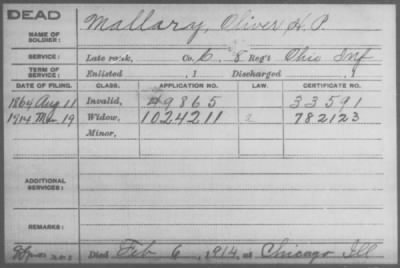 DEAD
NAME OF SOLDIER: Mallary, Oliver H. P.
SERVICE: Late rank, Co. C, 8 Reg't Ohio Inf
TERM OF SERVICE: Enlisted , 1 Discharged , 1
DATE OF FILING. CLASS. APPLICATION NO. LAW. CERTIFICATE NO.
1864 Aug 11 Invalid, 9865 33591
1914 Mar 19 Widow, 1024211 782123
Minor,
ADDITIONAL SERVICES:
REMARKS:
Died Feb 6, 1914, at Chicago Ill